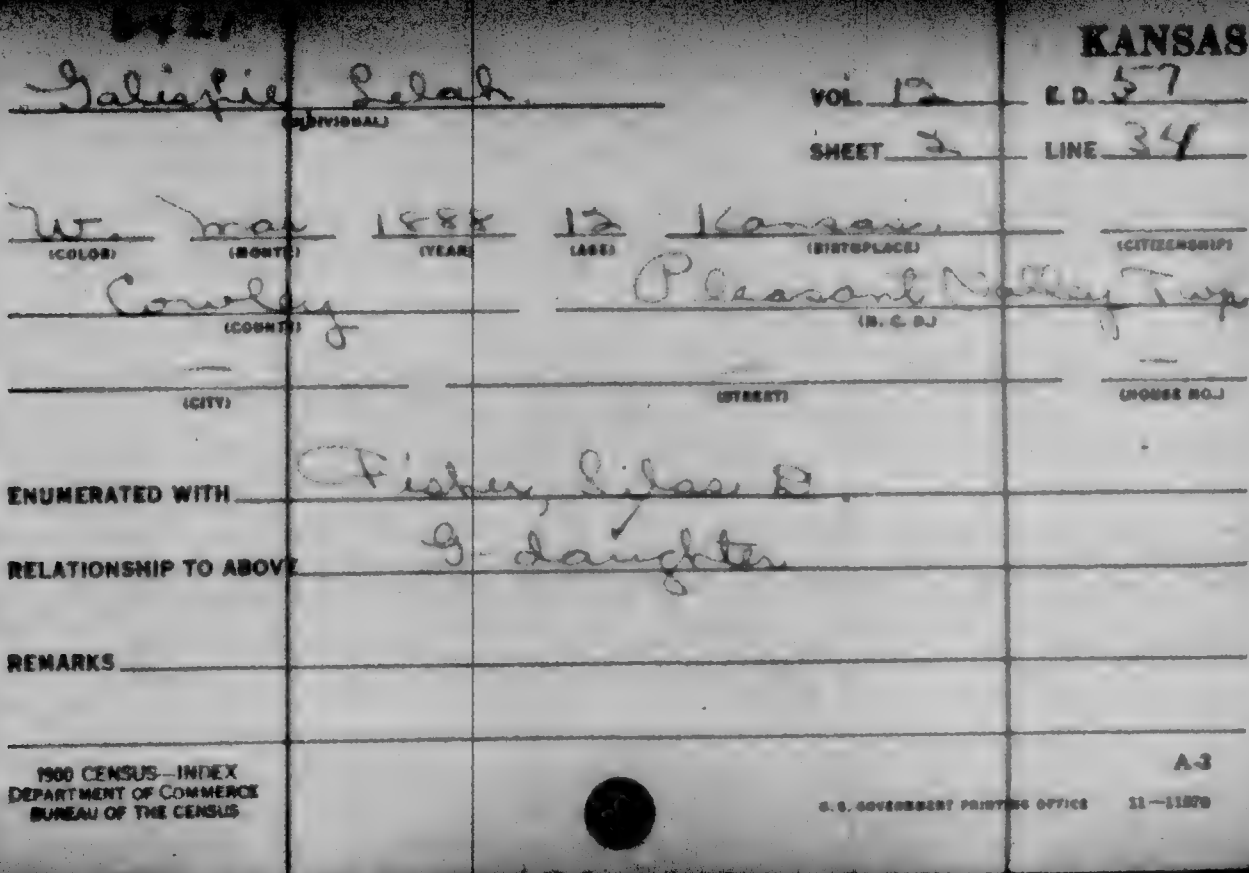 KANSAS
Galispie, Selah
(INDIVIDUAL)
VOL. 12 E. D. 57
SHEET 2 LINE 34
W. Mar 1888 12 Kansas
(COLOR) (MONTH) (YEAR) (AGE) (BIRTHPLACE) (CITIZENSHIP)
Cowley Pleasant Valley Twp
(COUNTY) (M. C. D.)
— — —
(CITY) (STREET) (HOUSE NO.)
ENUMERATED WITH Fisher, Silas D.
RELATIONSHIP TO ABOVE G-daughter
REMARKS
1900 CENSUS—INDEX
DEPARTMENT OF COMMERCE
BUREAU OF THE CENSUS
A-3
U.S. GOVERNMENT PRINTING OFFICE 11—11879